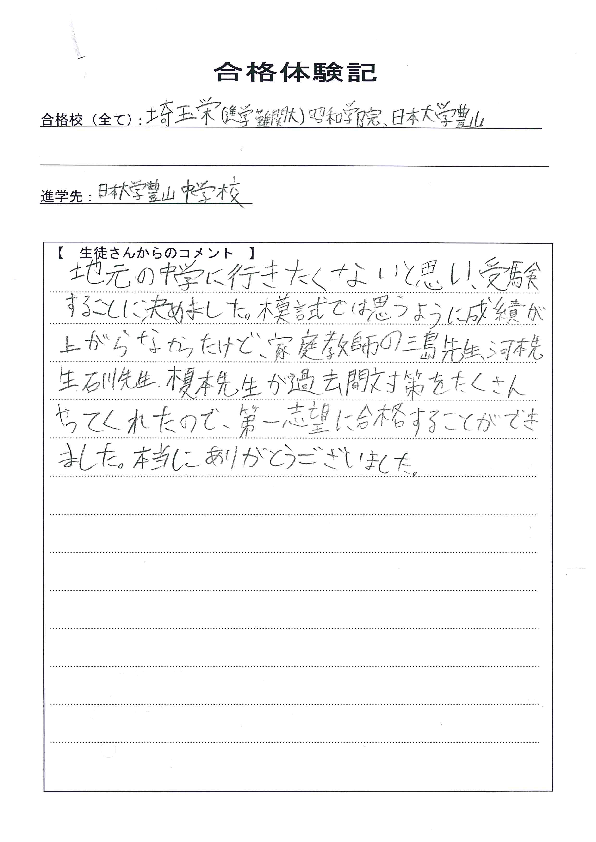 合格体験記
合格校（全て）：埼玉栄(進学難関大)昭和学院、日本大学豊山
進学先：日本大学豊山中学校
【　生徒さんからのコメント　】
地元の中学に行きたくないと思い、受験
することに決めました。模試では思うように成績が
上がらなかったけど、家庭教師の三島先生、河本先
生石川先生、榎本先生が過去問対策をたくさん
やってくれたので、第一志望に合格することができ
ました。本当にありがとうございました。